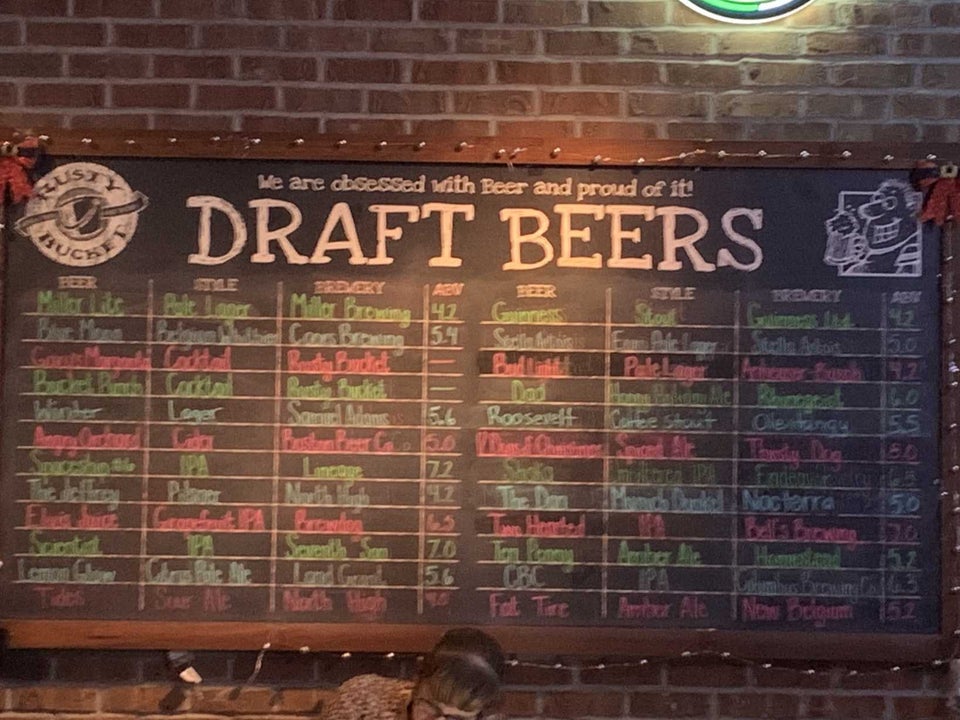 RUSTY BUCKET
We are obsessed with Beer and proud of it!
DRAFT BEERS
BEER STYLE BREWERY ABV BEER STYLE BREWERY ABV
Miller Lite Pale Lager Miller Brewing 4.2 Guinness Stout Guinness Ltd. 4.2
Blue Moon Belgian Coors Brewing 5.4 Stella Artois Euro Pale Lager Stella Artois 5.0
Cocktail Rusty Bucket — Bud Light Pale Lager Anheuser-Busch 4.2
Bucket Cocktail Rusty Bucket — Dad Hoppy Ale Rhinegeist 6.0
Winter Lager Samuel Adams 5.6 Roosevelt Coffee Stout Olentangy 5.5
Angry Orchard Cider Boston Beer Co 5.0 Ale Thirsty Dog
Spaceship #6 IPA Lineage 7.2 IPA
The Jeffrey Pilsner North High 4.2 The Dan Munich Dunkel Nocterra 5.0
Elvis Juice Grapefruit IPA Brewdog 6.5 Two Hearted IPA Bell's Brewing 7.0
Scientist IPA Seventh Son 7.0 Ten Penny Amber Ale Homestead 5.2
Lemon Glow Pale Ale Land Grant 5.6 CBC IPA Columbus Brewing Co 6.3
Tides Sour Ale North High Fat Tire Amber Ale New Belgium 5.2